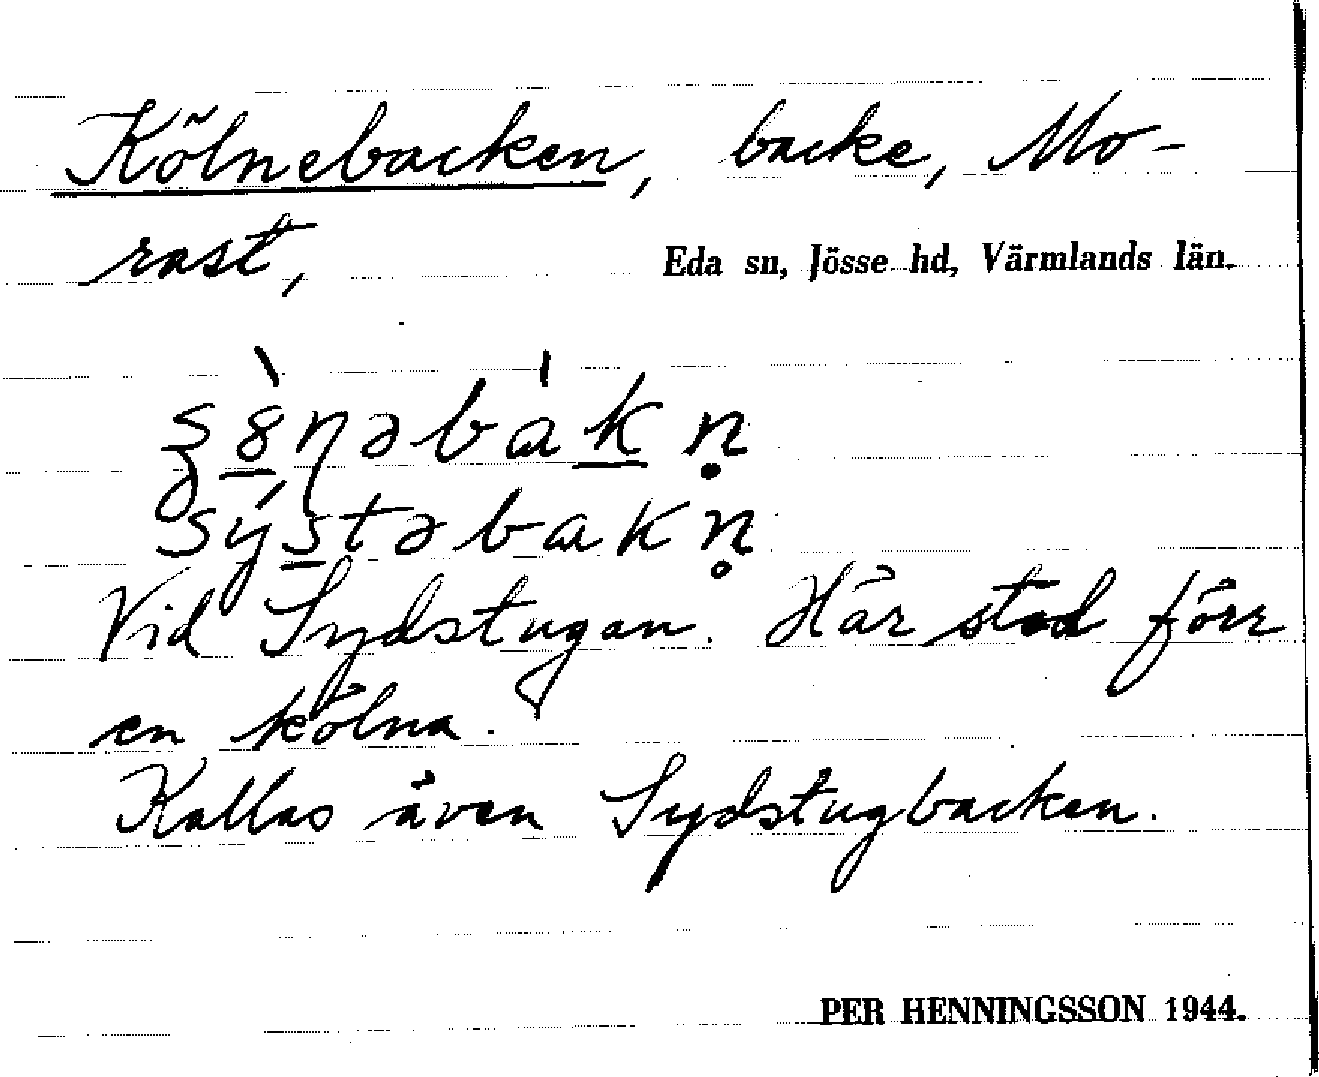 Kölnebacken, backe, Mo-
rast,
Eda sn, Jösse hd, Värmlands län.
sýstəbakn̥
Vid Sydstugan. Här stod förr
en kölna.
Kallas även Sydstugbacken.
PER HENNINGSSON 1944.